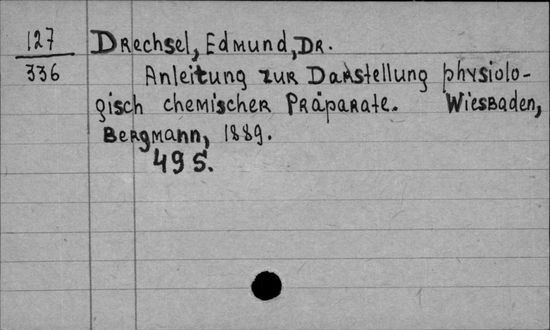 127 Drechsel, Edmund, Dr.
336 Anleitung zur Darstellung physiolo-
gisch chemischer Präparate. Wiesbaden,
Bergmann, 1889.
49 S.